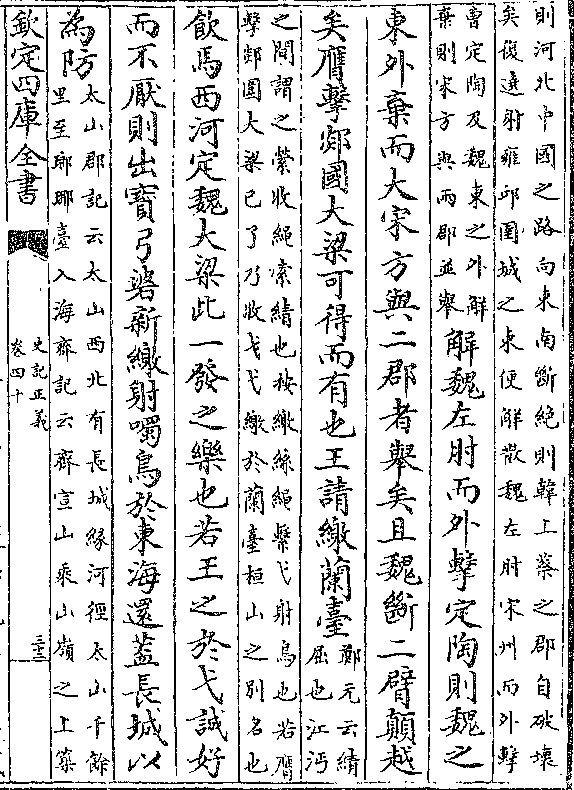 則河北中國之路向東南斷絶則韓上蔡之郡自破壞
矣復遶射雍邱圍城之東便解散魏左肘宋州而外擊
曹定陶及魏東之外解
棄則宋方與兩郡並舉
解魏左肘而外擊定陶則魏之
東外棄而大宋方與二郡者舉矣且魏斷二臂顛越
矣膺擊郯國大梁可得而有也王請繳蘭臺
鄭元云綪
屈也江沔
之間謂之縈收繩索綪也按繳絲繩繫弋射鳥也若膺
擊郯圍大梁已了乃收弋弋繳於蘭臺桓山之别名也
飲馬西河定魏大梁此一發之樂也若王之於弋誠好
而不厭則出寳弓碆新繳射噣鳥於東海還蓋長城以
為防
太山郡記云太山西北有長城緣河徑太山千餘
里至瑯琊臺入海齊記云齊宣山乘山嶺之上築
欽定四庫全書
史記正義
卷四十
三十三